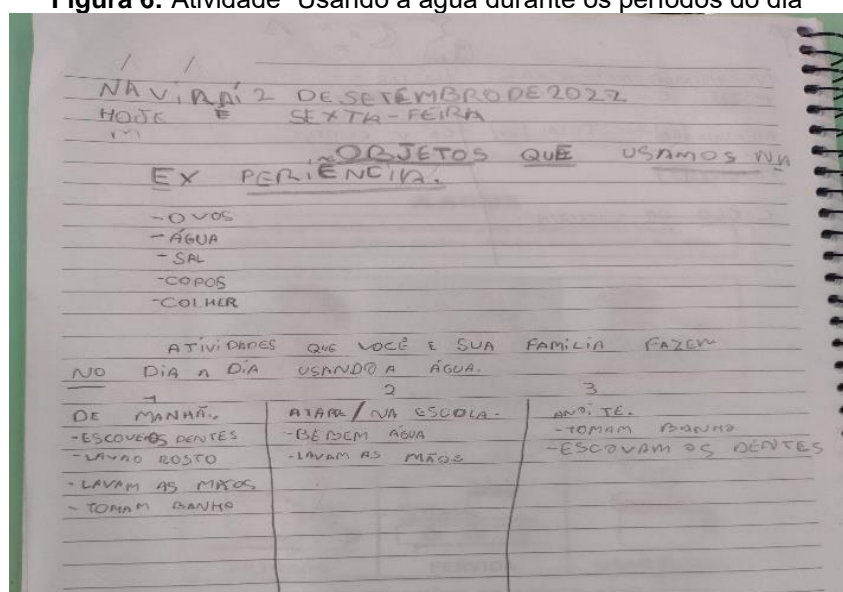 Figura 6: Atividade "Usando a água durante os períodos do dia"
/ /
NAVIRAÍ 2 DE SETEMBRO DE 2022
HOJE É SEXTA-FEIRA
M
OBJETOS QUE USAMOS NA
EXPERIÊNCIA.
-OVOS
-ÁGUA
-SAL
-COPOS
-COLHER
ATIVIDADES QUE VOCÊ E SUA FAMÍLIA FAZEM
NO DIA A DIA USANDO A ÁGUA.
1 2 3
DE MANHÃ. ATARDE/NA ESCOLA. ANOITE.
-ESCOVEOS DENTES -BEBEM ÁGUA -TOMAM BANHO
-LAVAO ROSTO -LAVAM AS MÃOS -ESCOVAM OS DENTES
-LAVAM AS MÃOS
-TOMAM BANHO